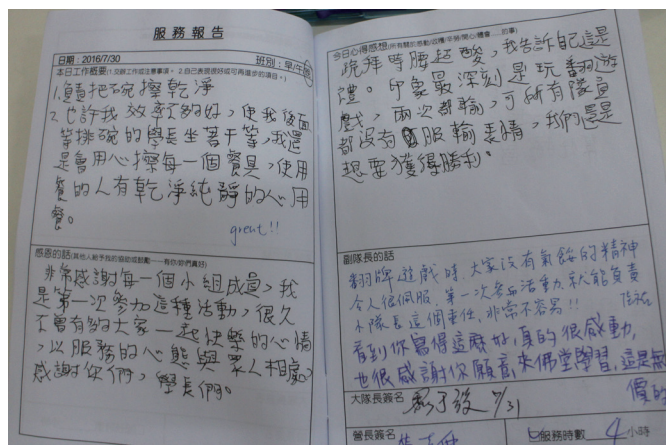 服務報告
日期：2016/7/30
班別：早/午
本日工作概要(1.交辦工作或注意事項。2.自己表現很好或可再進步的項目。)
1.負責把碗擦乾淨
2.也許我效率不夠好，使我後面
等排碗的學長坐著干等，我還
是會用心擦每一個寶具，使用
餐的人有乾淨純靜的心用
餐。
great!!
感恩的話(其他人給予我的協助或鼓勵……有你/妳們真好)
非常感謝每一個小組成員，我
是第一次參加這種活動，很久
不曾有夠大家一起快樂的心情
，以服務的心態與眾人相處，
感謝你們，學長們。
今日心得感想(所有關於感動/收穫/辛勞/開心/體會……的事)
跪拜時腰超酸，我告訴自己這是
禮。印象最深刻是玩翻遊
戲，兩次都輸，可所有隊員
都沒有服輸表情，我們還是
想要獲得勝利。
副隊長的話
翻牌遊戲時，大家沒有氣餒的精神
令人很佩服，第一次參加活動就能負責
小隊長這個重任，非常不容易!!
看到你寫得這麼好，真的很感動，
也很感謝你願意來佛堂學習，這是無
價的
大隊長簽名
7/31
營長簽名
服務時數 4 小時